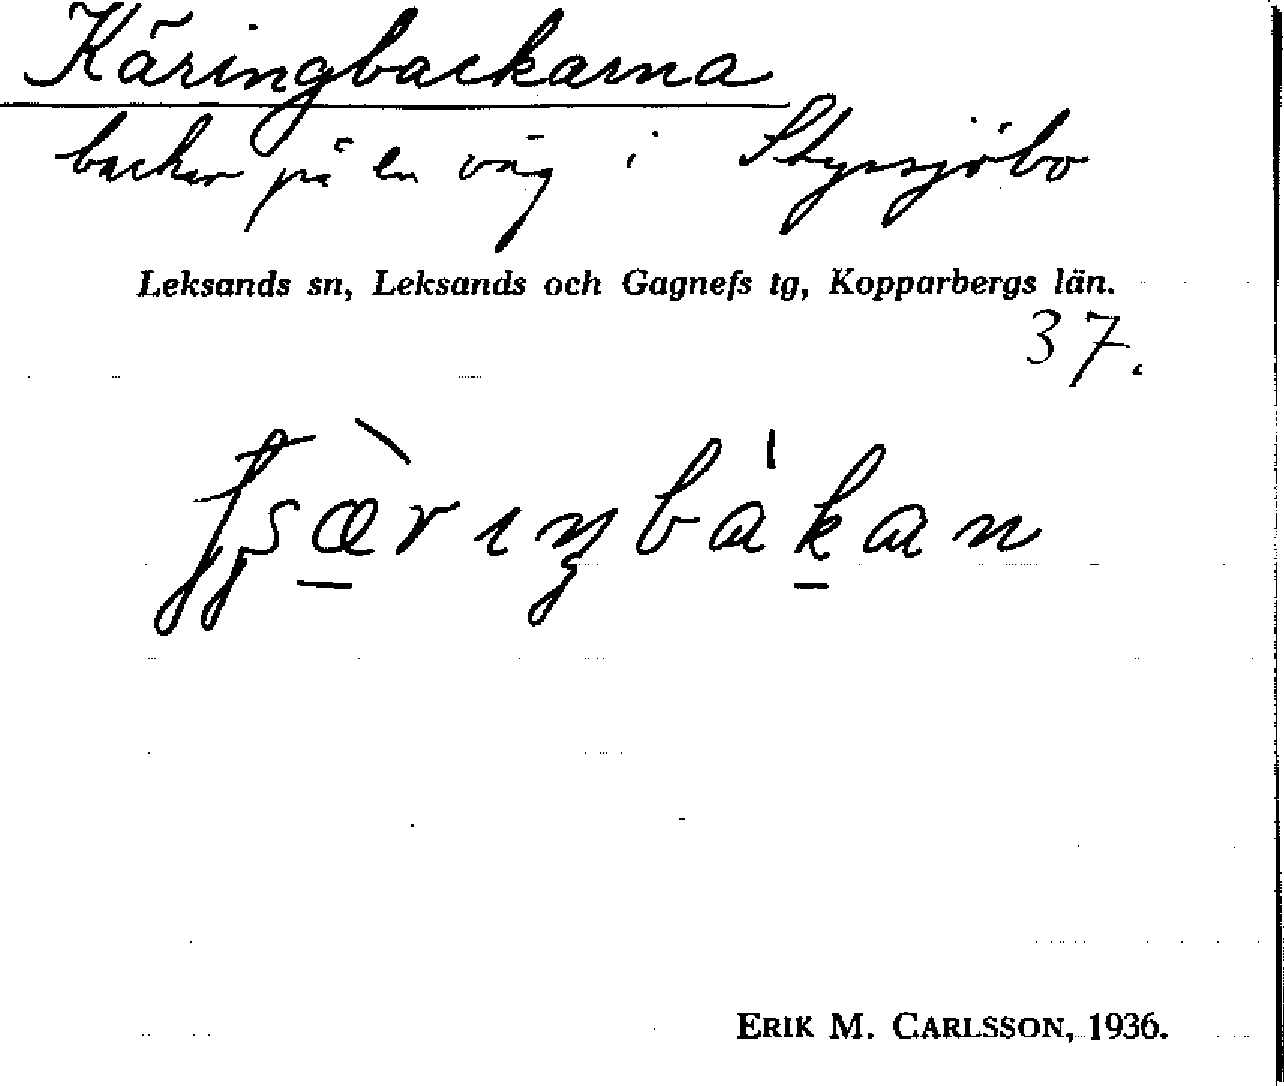 Käringbackarna
backar på en väg i Styrsjöbo
Leksands sn, Leksands och Gagnefs tg, Kopparbergs län.
37.
ERIK M. CARLSSON, 1936.